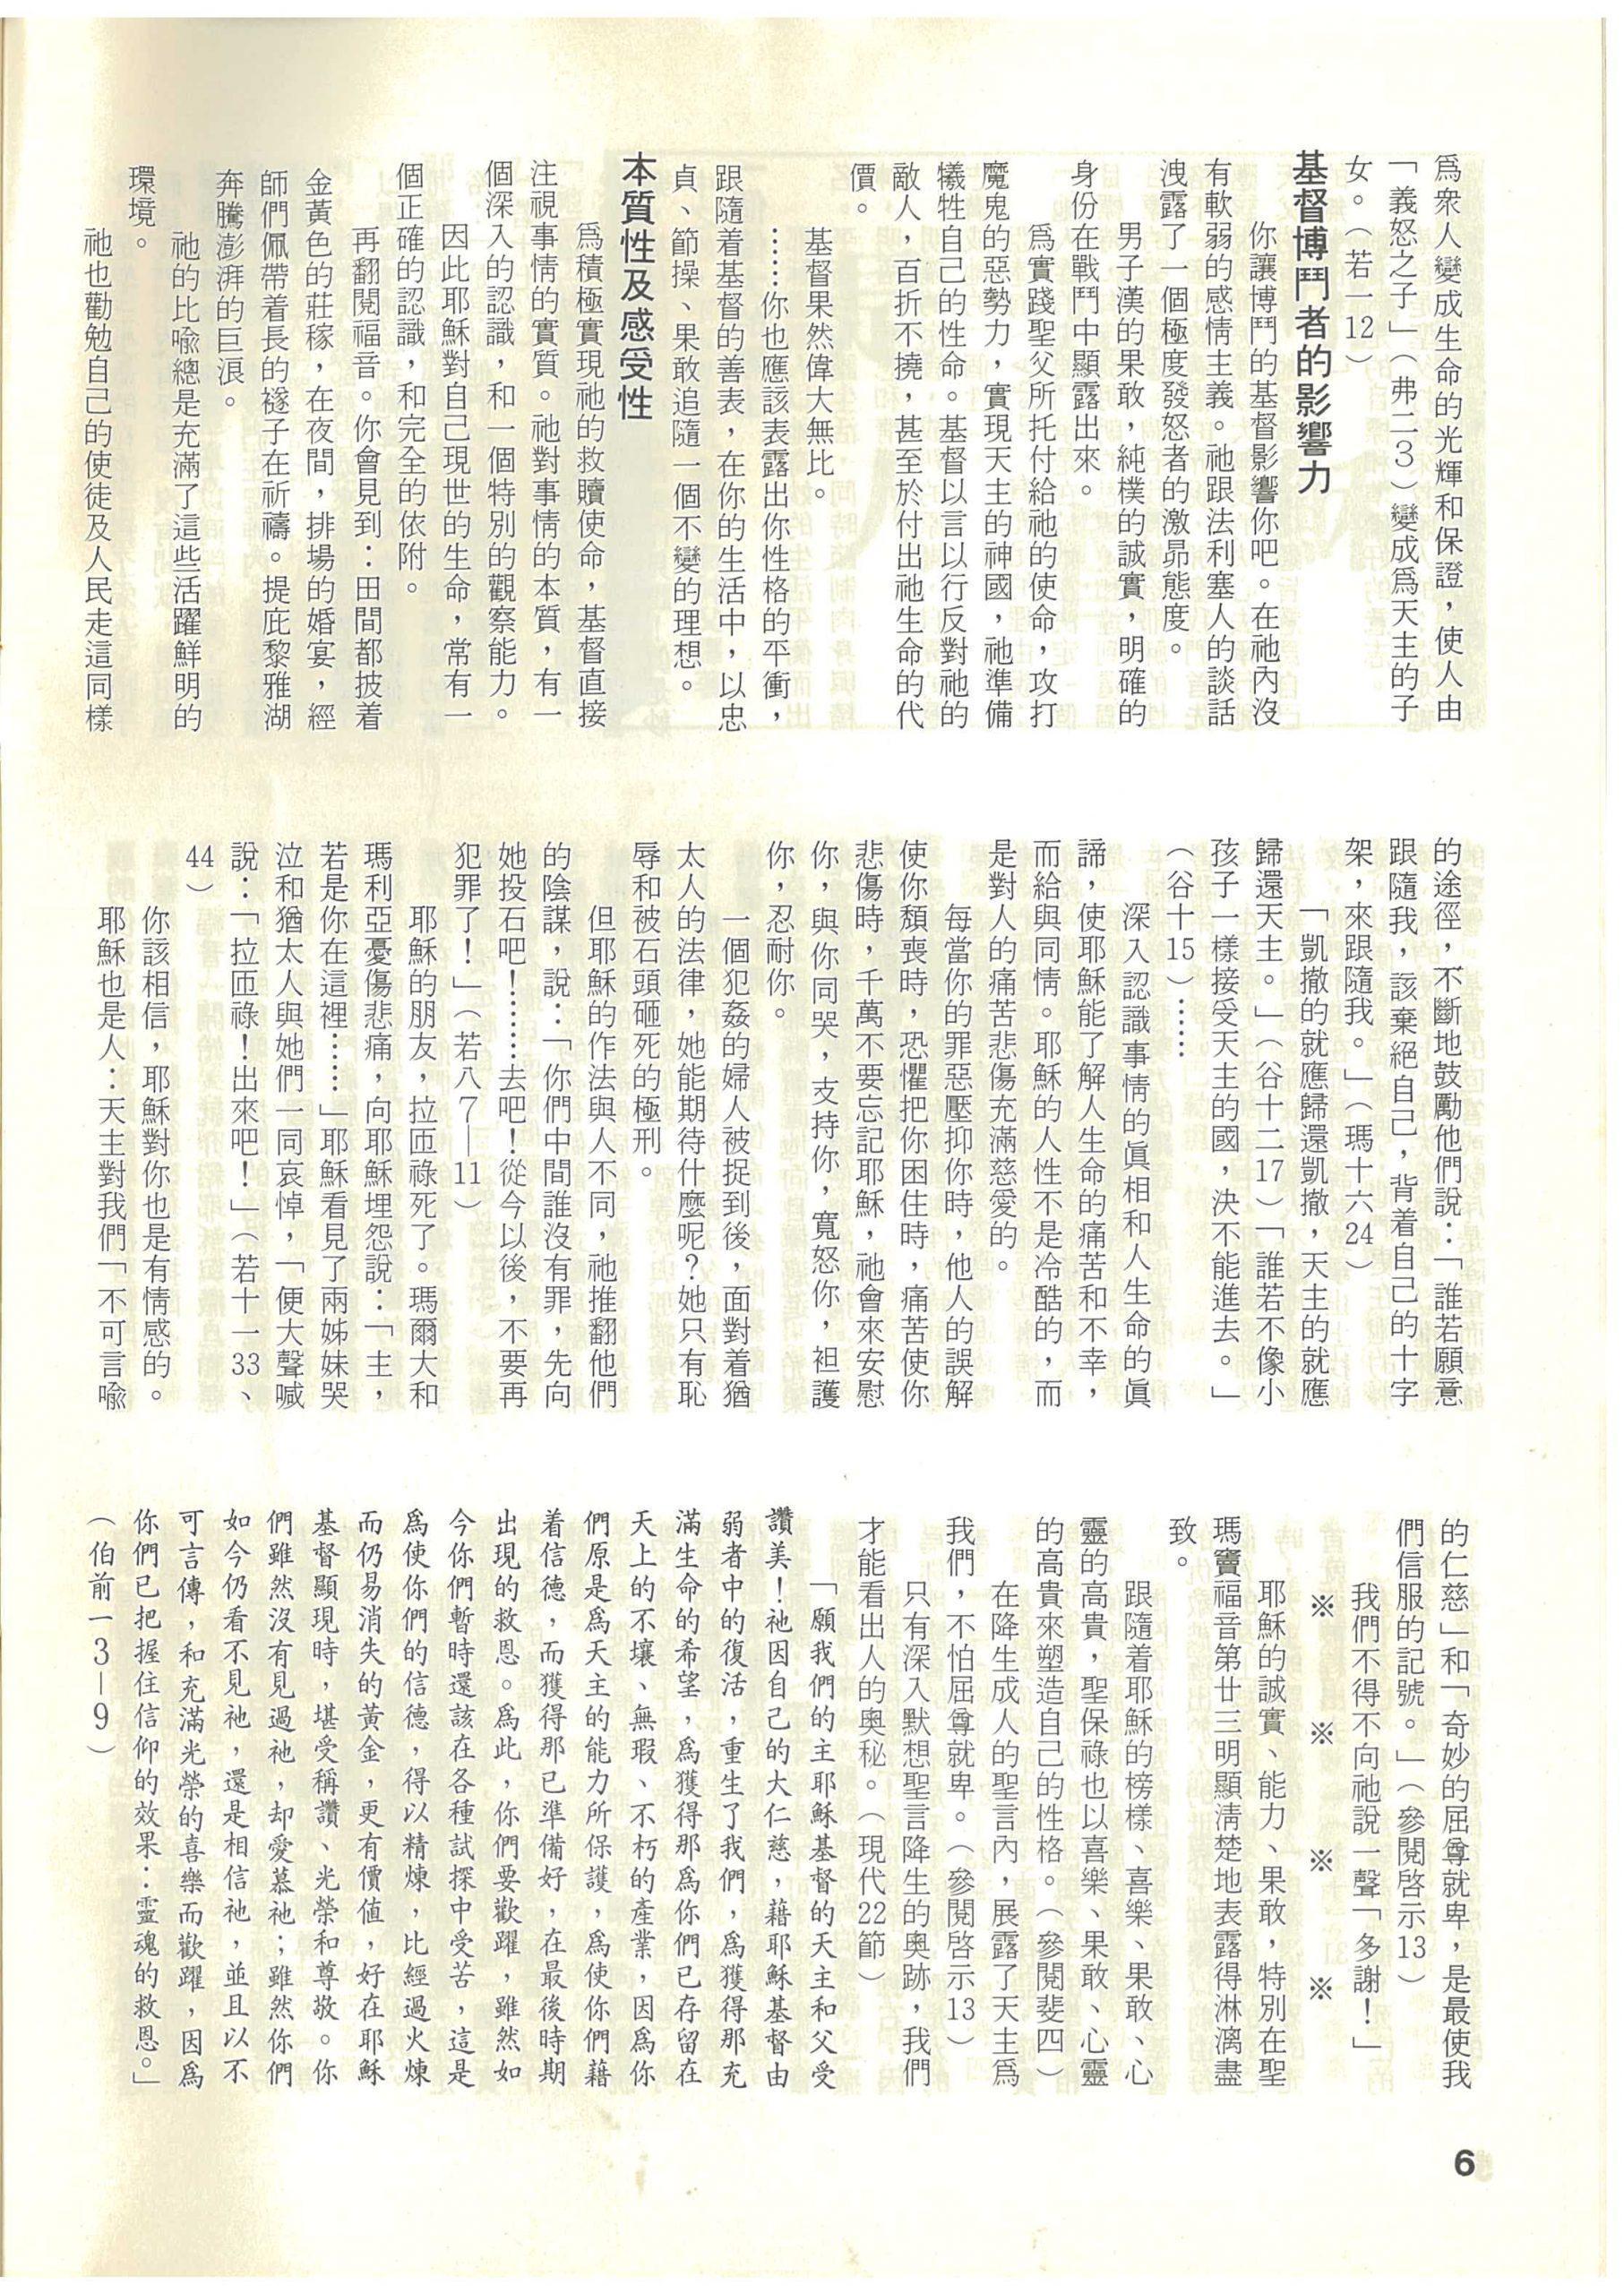 爲衆人變成生命的光輝和保證，使人由
「義怒之子」（弗二3）變成爲天主的子
女。（若一12）
基督博鬥者的影響力
你讓博鬥的基督影響你吧。在祂內沒
有軟弱的感情主義。祂跟法利塞人的談話
洩露了一個極度發怒者的激昻態度。
男子漢的果敢，純樸的誠實，明確的
身份在戰鬥中顯露出來。
爲實踐聖父所托付給祂的使命，攻打
魔鬼的惡勢力，實現天主的神國，祂準備
犧牲自己的性命。基督以言以行反對祂的
敵人，百折不撓，甚至於付出祂生命的代
價。
基督果然偉大無比。
……你也應該表露出你性格的平衝，
跟隨着基督的善表，在你的生活中，以忠
貞、節操、果敢追隨一個不變的理想。
本質性及感受性
爲積極實現祂的救贖使命，基督直接
注視事情的實質。祂對事情的本質，有一
個深入的認識，和一個特別的觀察能力。
因此耶穌對自己現世的生命，常有一
個正確的認識，和完全的依附。
再翻閱福音。你會見到：田間都披着
金黃色的莊稼，在夜間，排場的婚宴，經
師們佩帶着長的襚子在祈禱。提庇黎雅湖
奔騰澎湃的巨浪。
祂的比喩總是充滿了這些活躍鮮明的
環境。
祂也勸勉自己的使徒及人民走這同樣
的途徑，不斷地鼓勵他們說：「誰若願意
跟隨我，該棄絕自己，背着自己的十字
架，來跟隨我。」（瑪十六24）
「凱撤的就應歸還凱撤，天主的就應
歸還天主。」（谷十二17）「誰若不像小
孩子一樣接受天主的國，決不能進去。」
（谷十15）……
深入認識事情的眞相和人生命的眞
諦，使耶穌能了解人生命的痛苦和不幸，
而給與同情。耶穌的人性不是冷酷的，而
是對人的痛苦悲傷充滿慈愛的。
每當你的罪惡壓抑你時，他人的誤解
使你頹喪時，恐懼把你困住時，痛苦使你
悲傷時，千萬不要忘記耶穌，祂會來安慰
你，與你同哭，支持你，寬恕你，袒護
你，忍耐你。
一個犯姦的婦人被捉到後，面對着猶
太人的法律，她能期待什麼呢？她只有恥
辱和被石頭砸死的極刑。
但耶穌的作法與人不同，祂推翻他們
的陰謀，說：「你們中間誰沒有罪，先向
她投石吧！……去吧！從今以後，不要再
犯罪了！」（若八7—11）
耶穌的朋友，拉匝祿死了。瑪爾大和
瑪利亞憂傷悲痛，向耶穌埋怨說：「主，
若是你在這裡……」耶穌看見了兩姊妹哭
泣和猶太人與她們一同哀悼，「便大聲喊
說：「拉匝祿！出來吧！」（若十一33、
44）
你該相信，耶穌對你也是有情感的。
耶穌也是人：天主對我們「不可言喩
的仁慈」和「奇妙的屈尊就卑，是最使我
們信服的記號。」（參閱啓示13）
我們不得不向祂說一聲「多謝！」
※　※　※　※
耶穌的誠實、能力、果敢，特別在聖
瑪竇福音第廿三明顯淸楚地表露得淋漓盡
致。
跟隨着耶穌的榜樣、喜樂、果敢、心
靈的高貴，聖保祿也以喜樂、果敢、心靈
的高貴來塑造自己的性格。（參閱斐四）
在降生成人的聖言內，展露了天主爲
我們，不怕屈尊就卑。（參閱啓示13）
只有深入默想聖言降生的奧跡，我們
才能看出人的奧秘。（現代22節）
「願我們的主耶穌基督的天主和父受
讚美！祂因自己的大仁慈，藉耶穌基督由
弱者中的復活，重生了我們，爲獲得那充
滿生命的希望，爲獲得那爲你們已存留在
天上的不壞、無瑕、不朽的產業，因爲你
們原是爲天主的能力所保護，爲使你們藉
着信德，而獲得那已準備好，在最後時期
出現的救恩。爲此，你們要歡躍，雖然如
今你們暫時還該在各種試探中受苦，這是
爲使你們的信德，得以精煉，比經過火煉
而仍易消失的黃金，更有價值，好在耶穌
基督顯現時，堪受稱讚、光榮和尊敬。你
們雖然沒有見過祂，却愛慕祂；雖然你們
如今仍看不見祂，還是相信祂，並且以不
可言傳，和充滿光榮的喜樂而歡躍，因爲
你們已把握住信仰的效果：靈魂的救恩。」
（伯前一3—9）
6